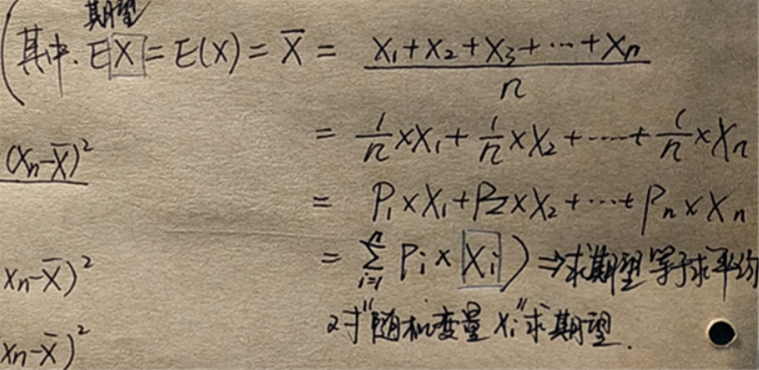 期望
(其中. EX = E(X) = X̄ = (X₁+X₂+X₃+…+Xₙ)/n
(xₙ-X̄)²
= 1/n × X₁ + 1/n × X₂ + …… + 1/n × Xₙ
= P₁×X₁+P₂×X₂+…+Pₙ×Xₙ
xₙ-X̄)²
= ∑ᵢ₌₁ⁿ Pᵢ × Xᵢ ) ⇒ 求期望等于求平均
xₙ-x̄)²
对"随机变量 Xᵢ"求期望.